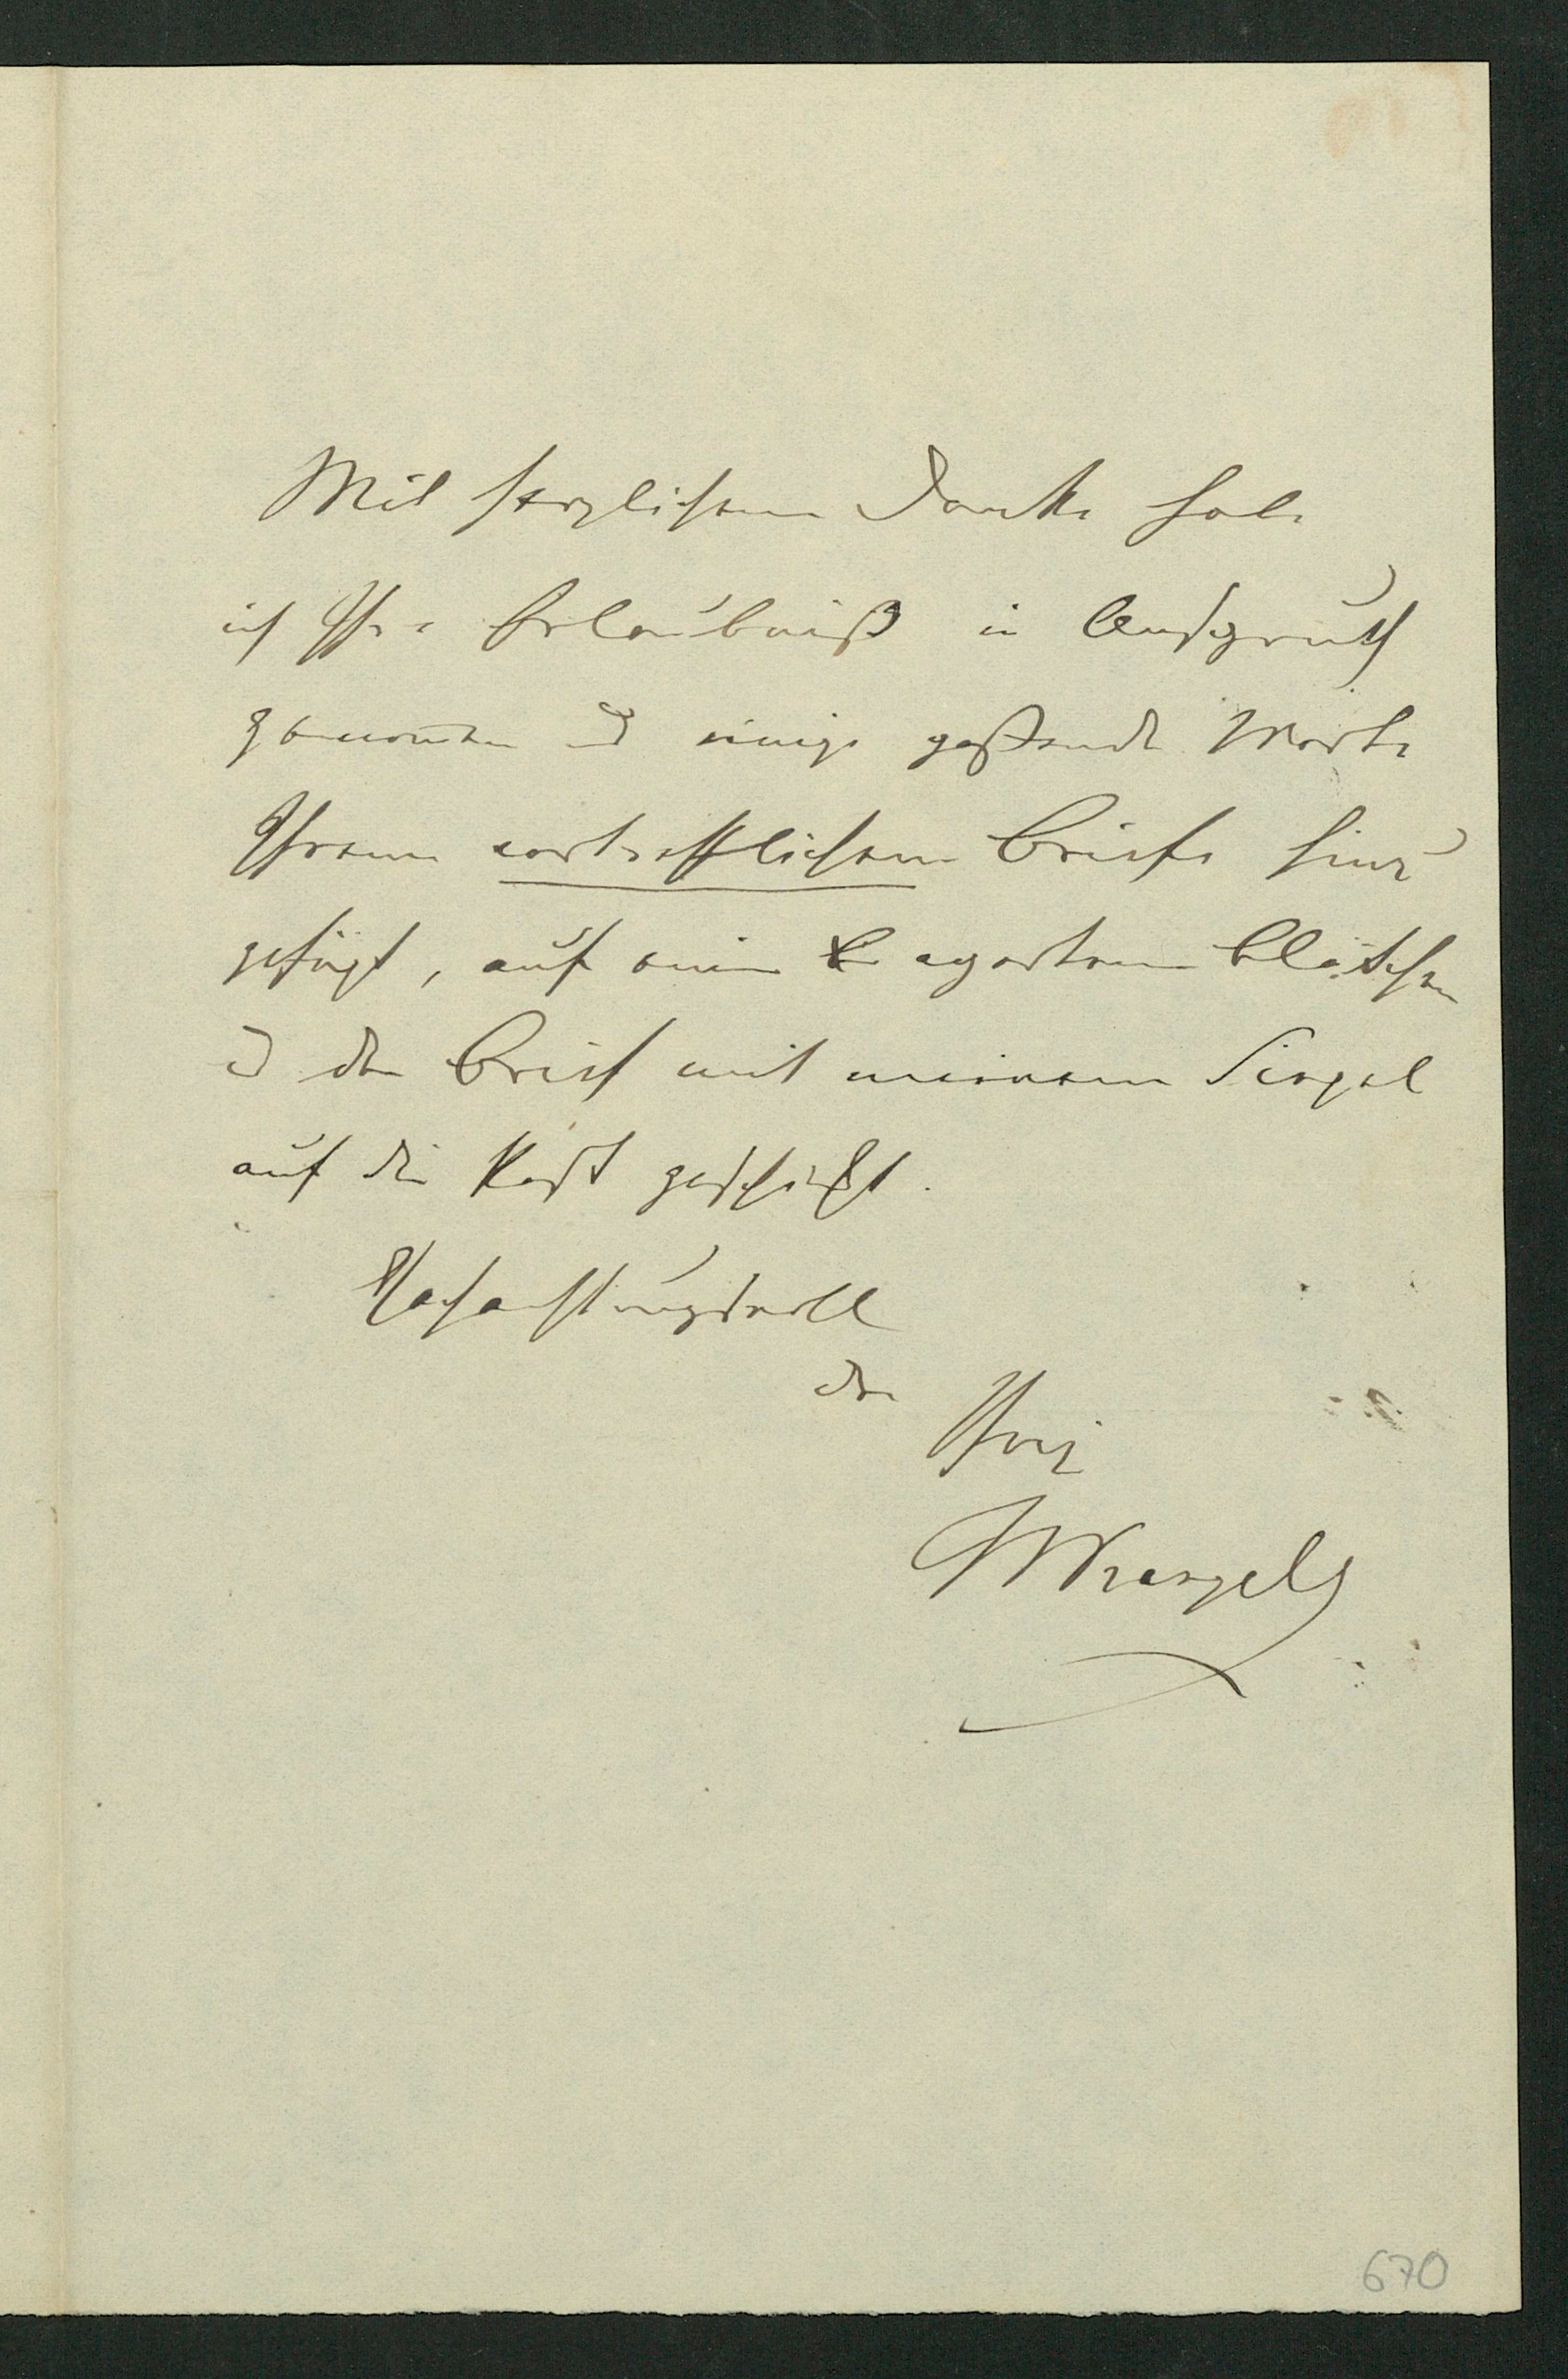 Mit herzlichem Danke habe
ich Ihre Erlaubniß in Anspruch
genommen und einige passende Worte
Ihrem vortrefflichem Briefe hinzu
gefügt, auf einem aparten Blättchen
und den Brief mit meinem Siegel
auf die Post geschickt.
Hochachtungsvoll
der
Ihrige
670